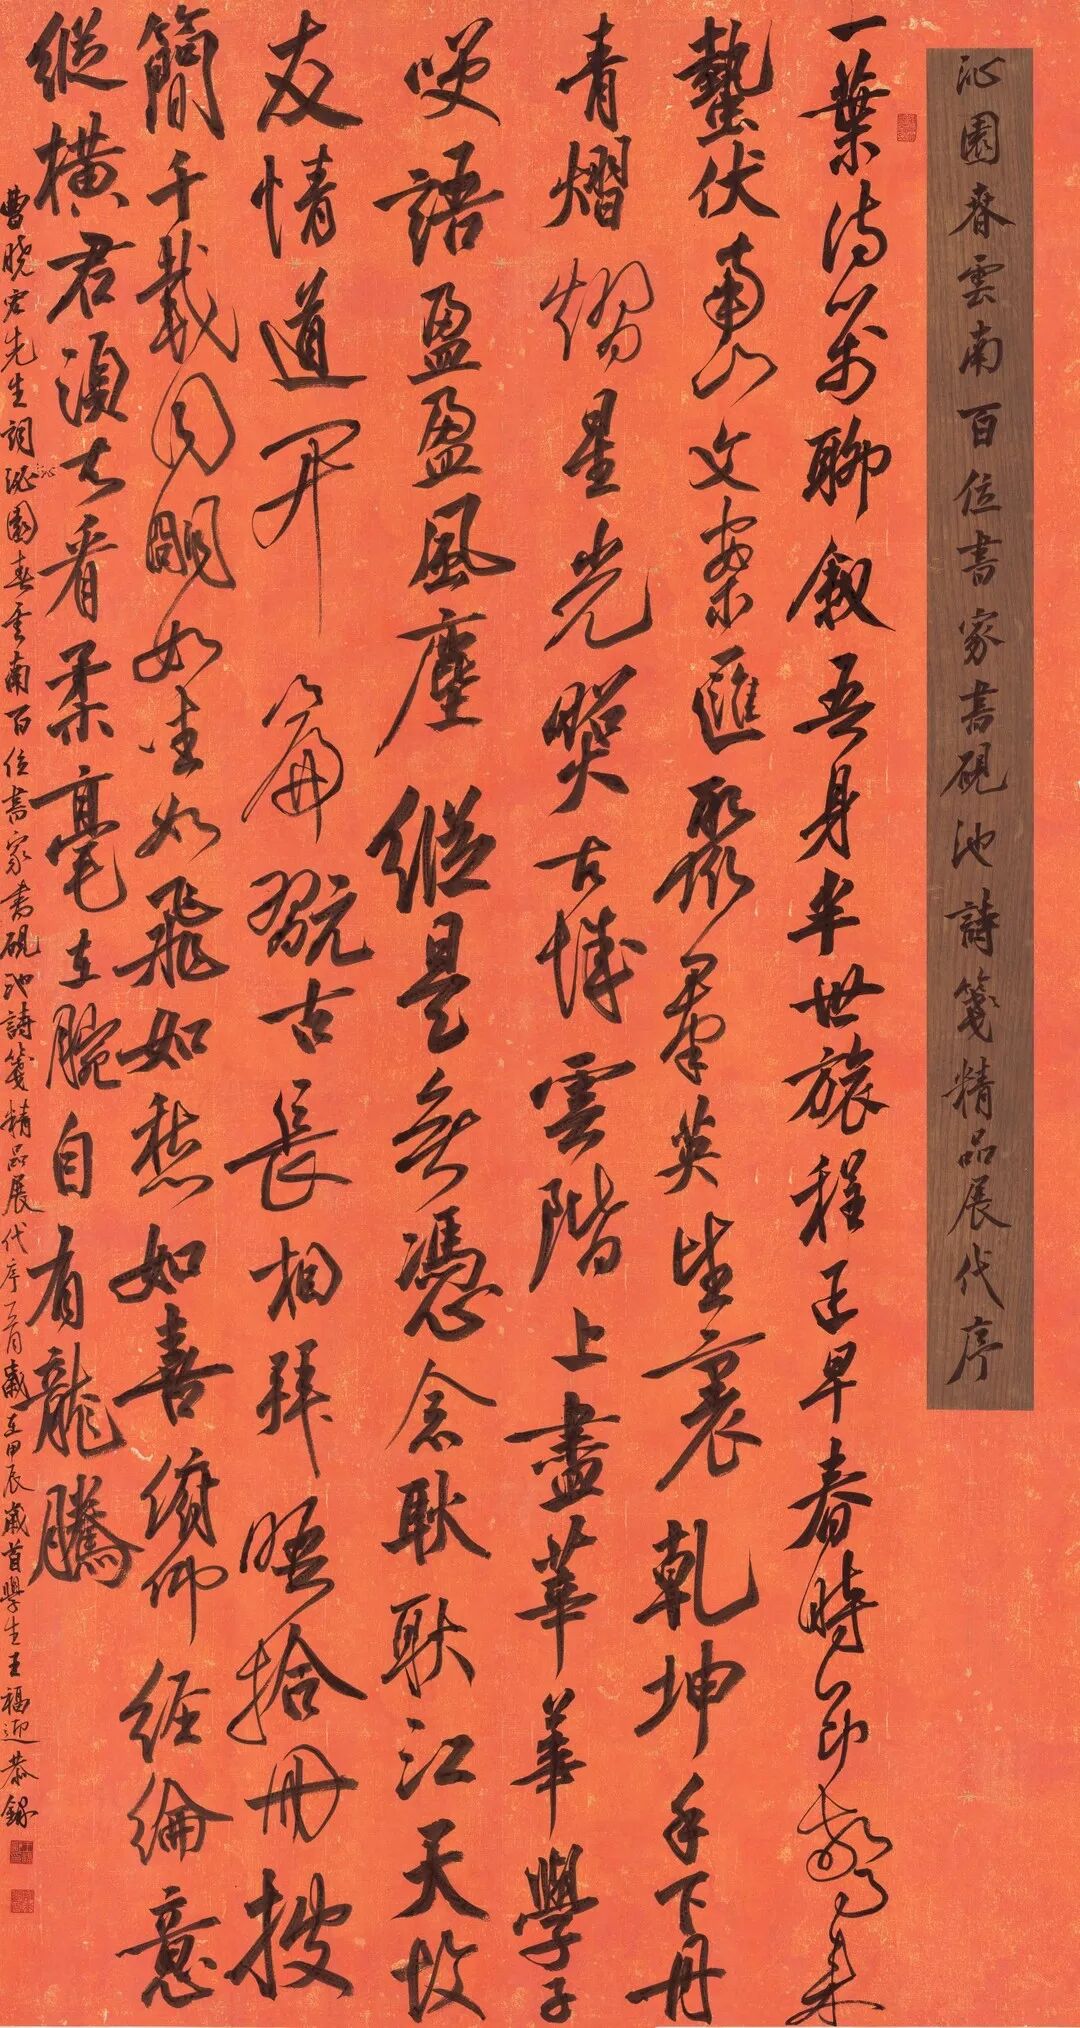 沁園春雲南百位書家書硯池詩箋精品展代序
一葉詩心萬聊叙吾身半世旅程正早春時節驚來
蟄伏南山文案匯聚羣英坐裏乾坤手下丹
青熠熠星光照古城雲階上盡華華學子
笑語盈盈風塵縱是無憑念耿耿江天故
友情道不簫翫古長相拜晤拾冊搜
簡千載同頤如生如飛如愁如喜俯仰經綸意
縱橫君須去看柔毫在腕自有龍騰
曹曉宏先生詞沁園春雲南百位書家書硯池詩箋精品展代序一首歲在甲辰歲首學生王福迎恭錄